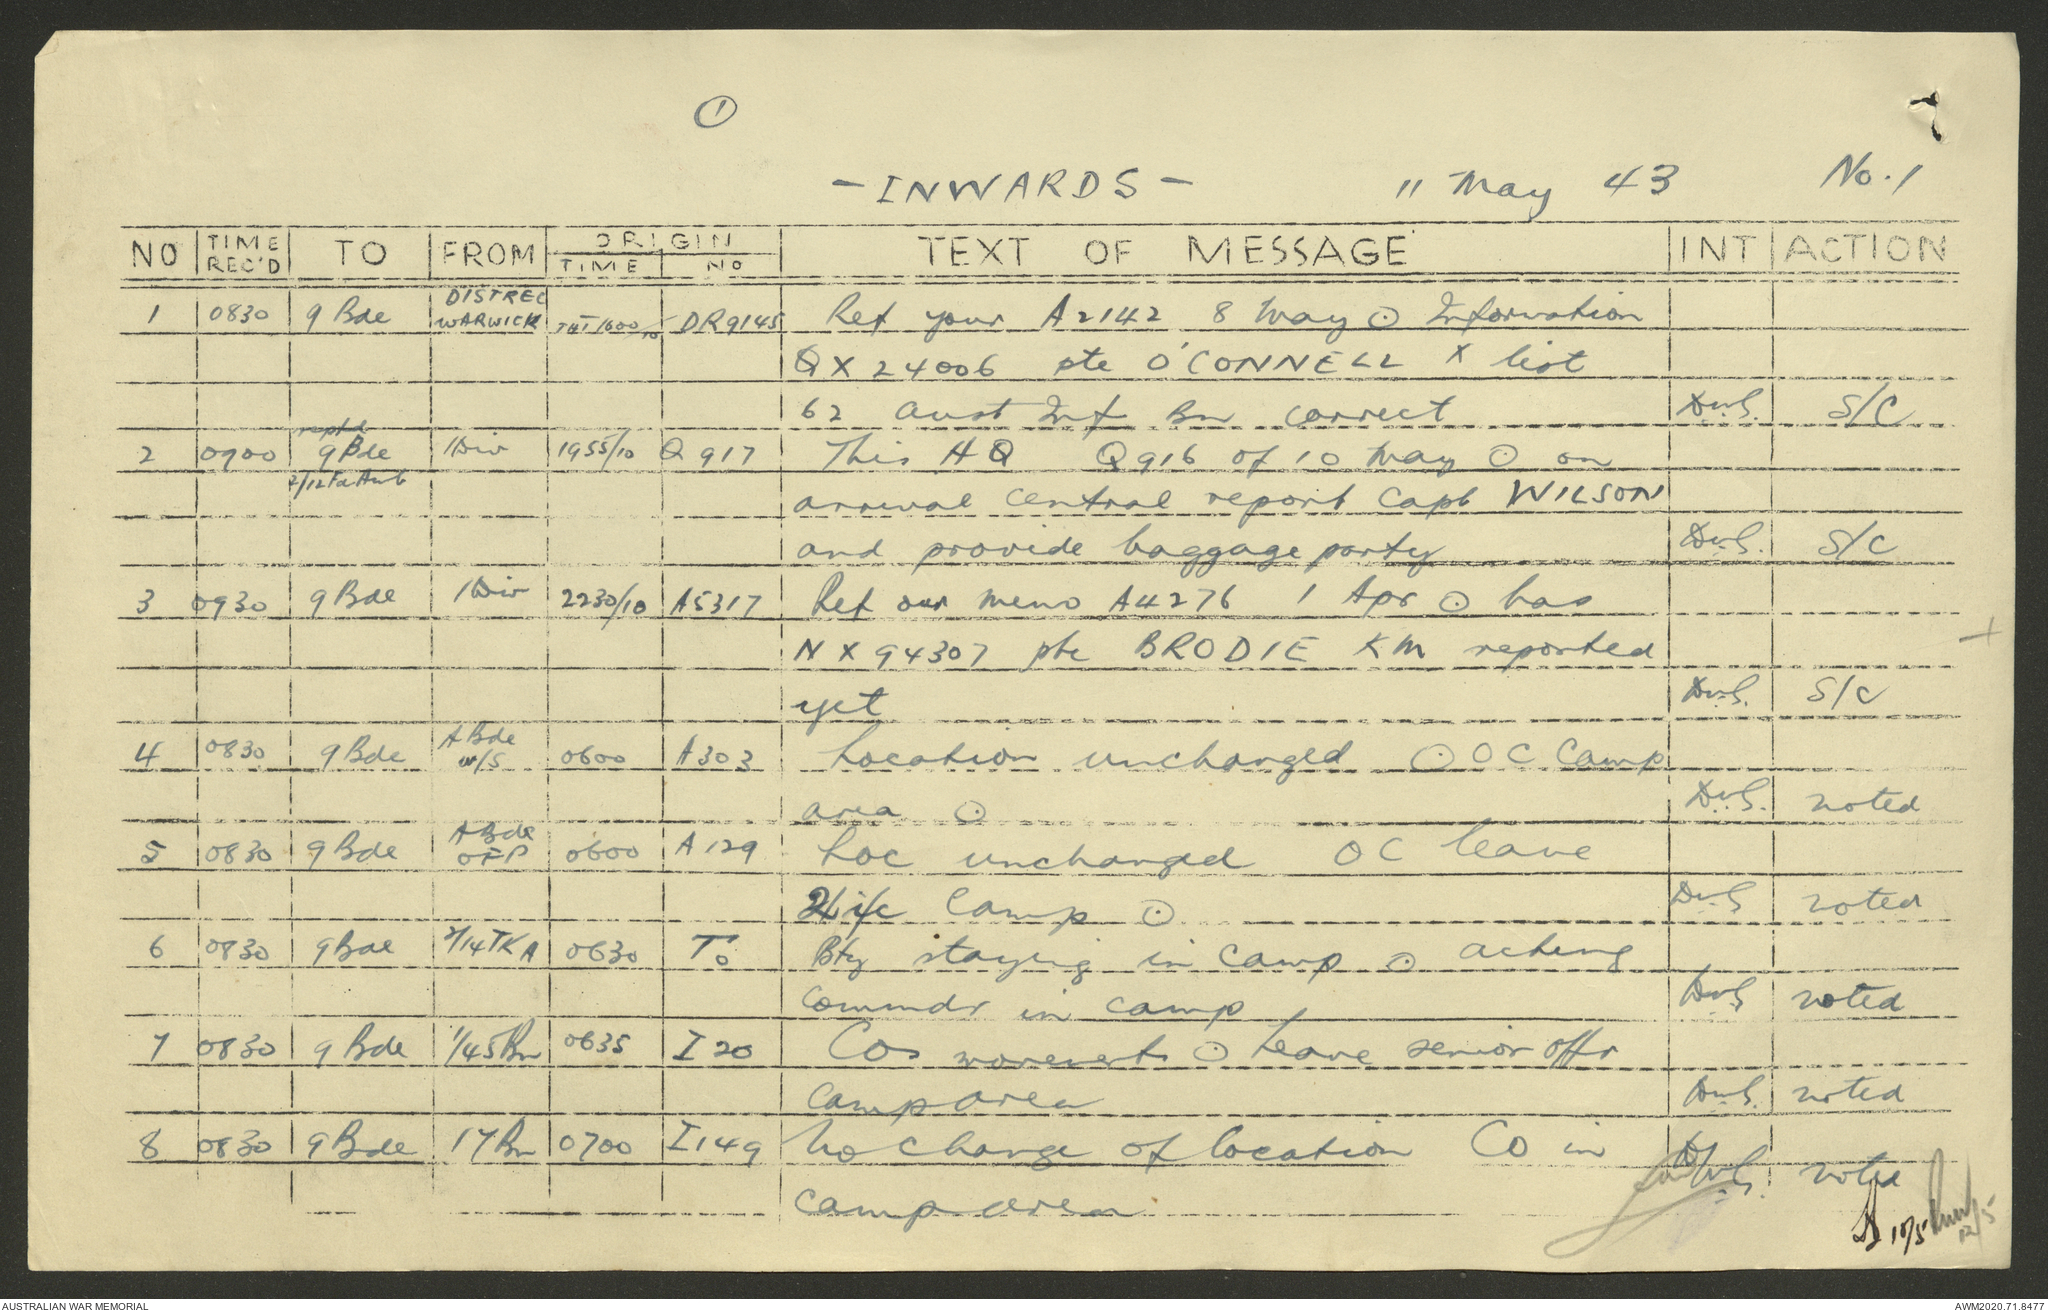 1
- INWARDS - 11 May 43 No. 1
NO TIME REC'D TO FROM ORIGIN TIME NO TEXT OF MESSAGE INT ACTION
1 0830 9 Bde DISTREC WARWICK 1600/10 DR9145 Ref your A2142 8 May ⊙ Information
QX24006 pte O'CONNELL X list
62 Aust Inf Bn correct DwS. S/C
2 0900 reptd 9 Bde 2/12 Fd Amb 1 Div 1955/10 Q917 This HQ Q916 of 10 May ⊙ on
arrival central report Capt WILSON
and provide baggage party DwS. S/C
3 0930 9 Bde 1 Div 2230/10 A5317 Ref our memo A4276 1 Apr ⊙ has
NX94307 pte BRODIE KM reported
yet DwS. S/C
4 0830 9 Bde A Bde W/S 0600 A303 Location unchanged ⊙ OC Camp
area ⊙ DwS. noted
5 0830 9 Bde A Bde OFP 0600 A129 Loc unchanged OC leave
2 i/c Camp ⊙ DwS noted
6 0830 9 Bde 2/14 TKA 0630 To Bty staying in camp ⊙ acting
commdr in camp DwS noted
7 0830 9 Bde 1/45 Bn 0635 I20 COs movements ⊙ Leave senior offr
camp area DwS. noted
8 0830 9 Bde 17 Bn 0700 I149 No change of location CO in
camp area DwS. noted
10/5 12/5
AUSTRALIAN WAR MEMORIAL AWM2020.71.8477